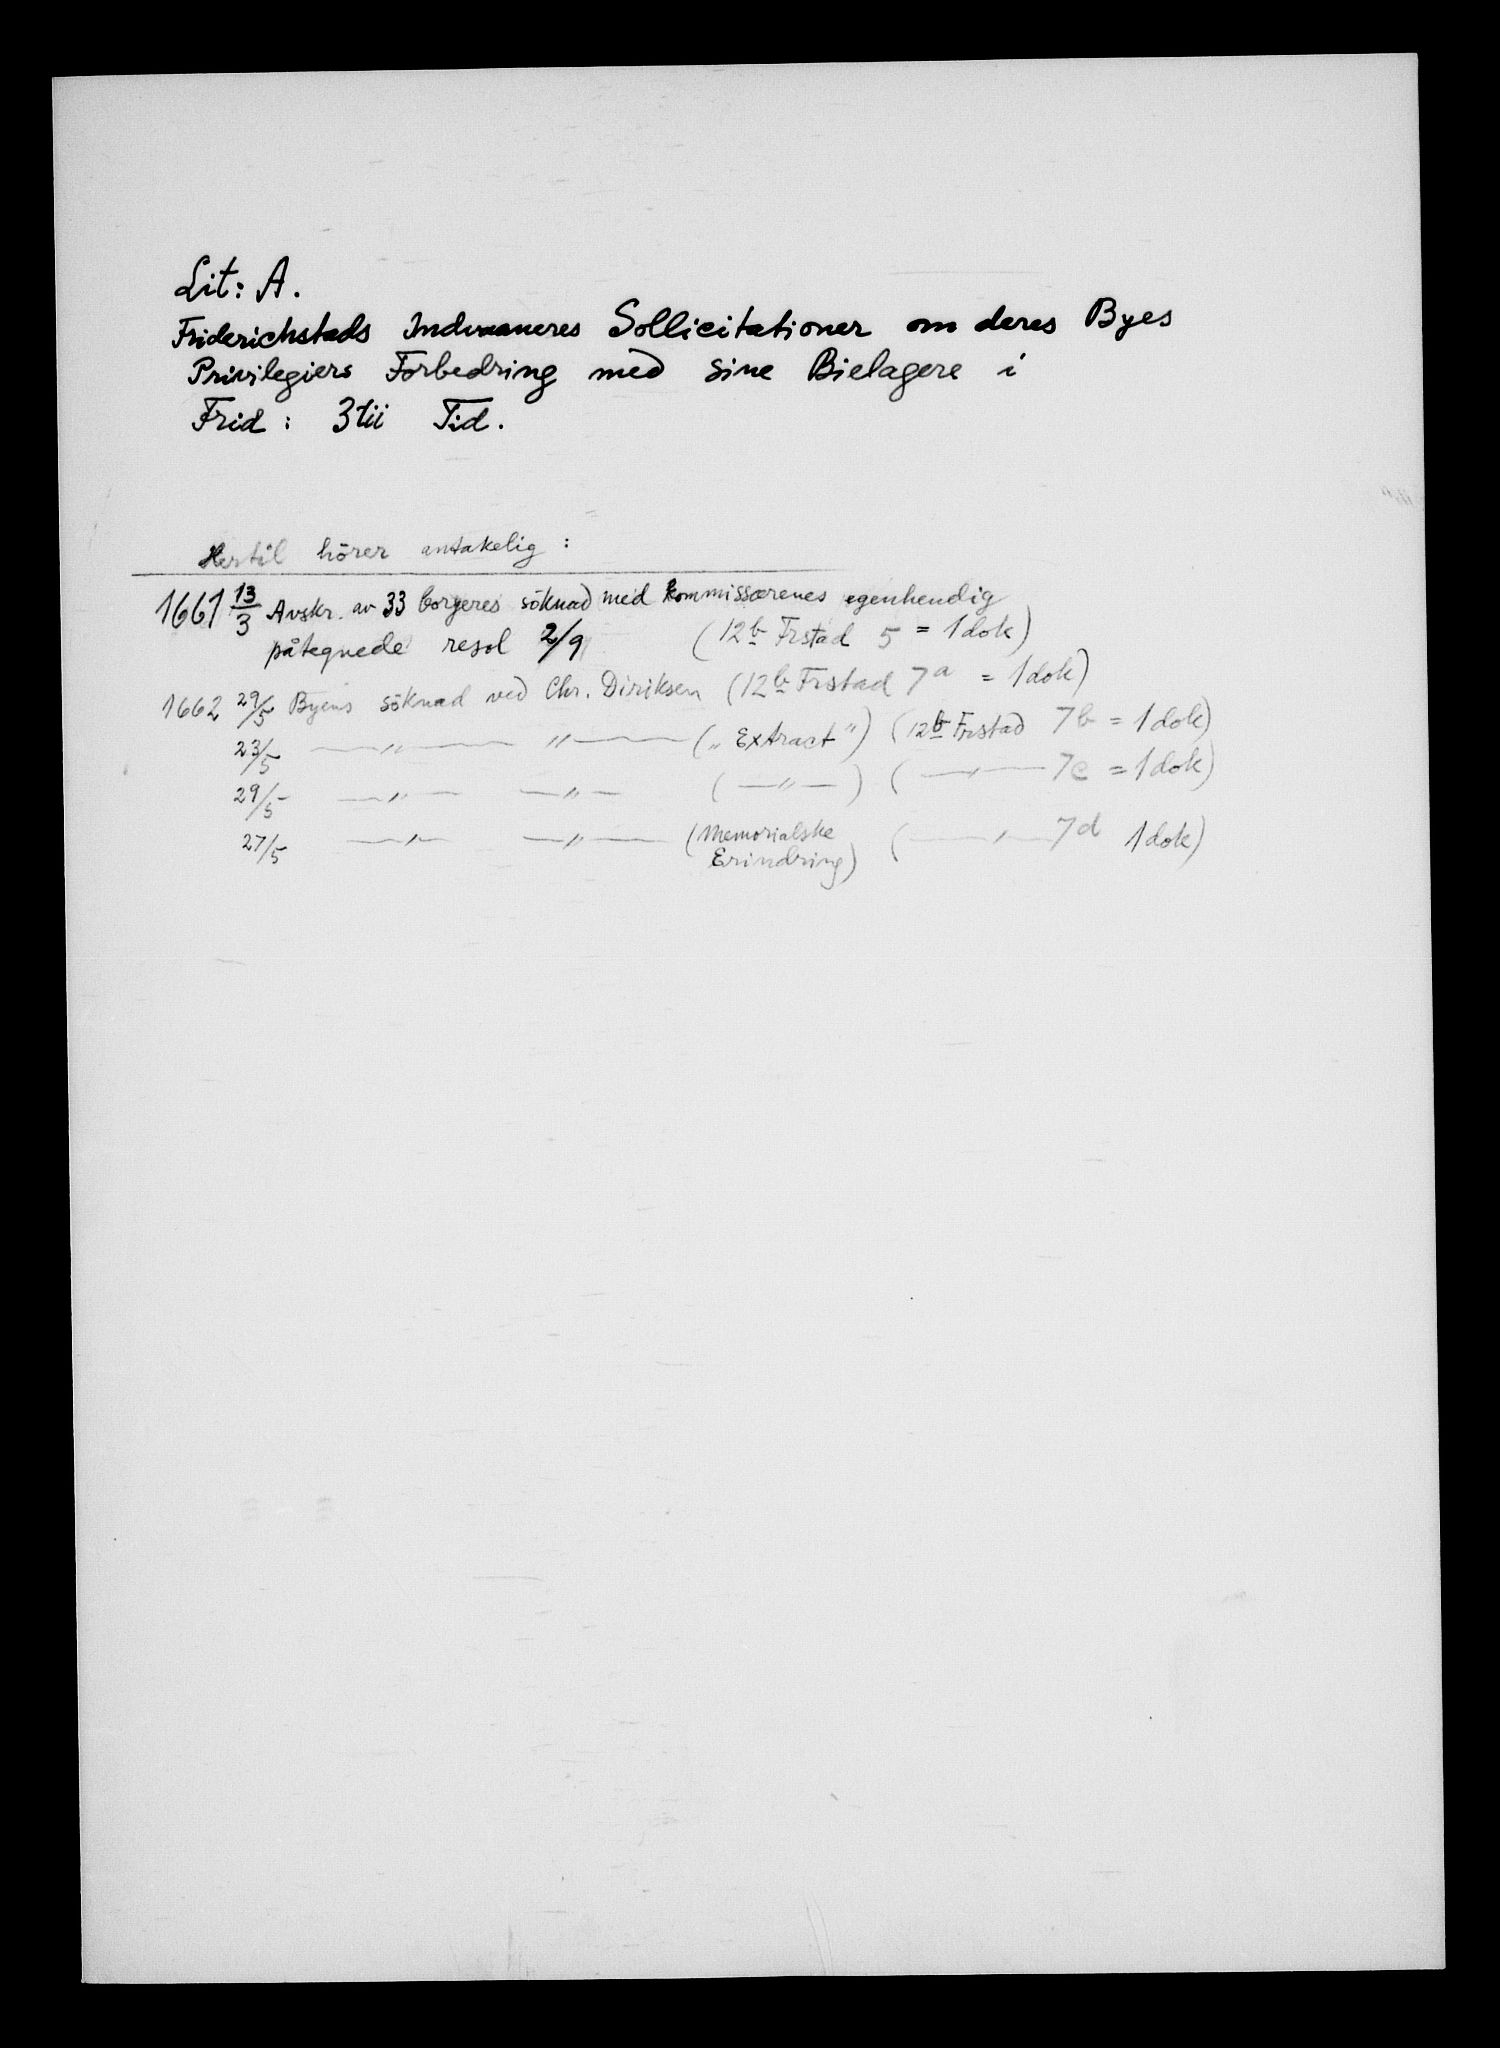 Lit: A.
Friderichstads Indvaaneres Sollicitationer om deres Byes
Privilegiers Forbedring med sine Bielagere i
Frid: 3tii Tid.
Hertil hörer antakelig:
1661 13/3 Avskr. av 33 borgeres söknad med kommissærenes egenhendig
påtegnede resol 2/9 (12b Frstad 5 = 1 dok)
1662 29/5 Byens söknad ved Chr. Diriksen (12b Frstad 7a = 1 dok)
23/5 —〃— 〃— („Extract") (12b Frstad 7b = 1 dok)
29/5 —〃— —〃— (—〃—) (—〃— 7c = 1 dok)
27/5 —〃— —〃— (Memorialske (—〃— 7d 1 dok)
Erindring)